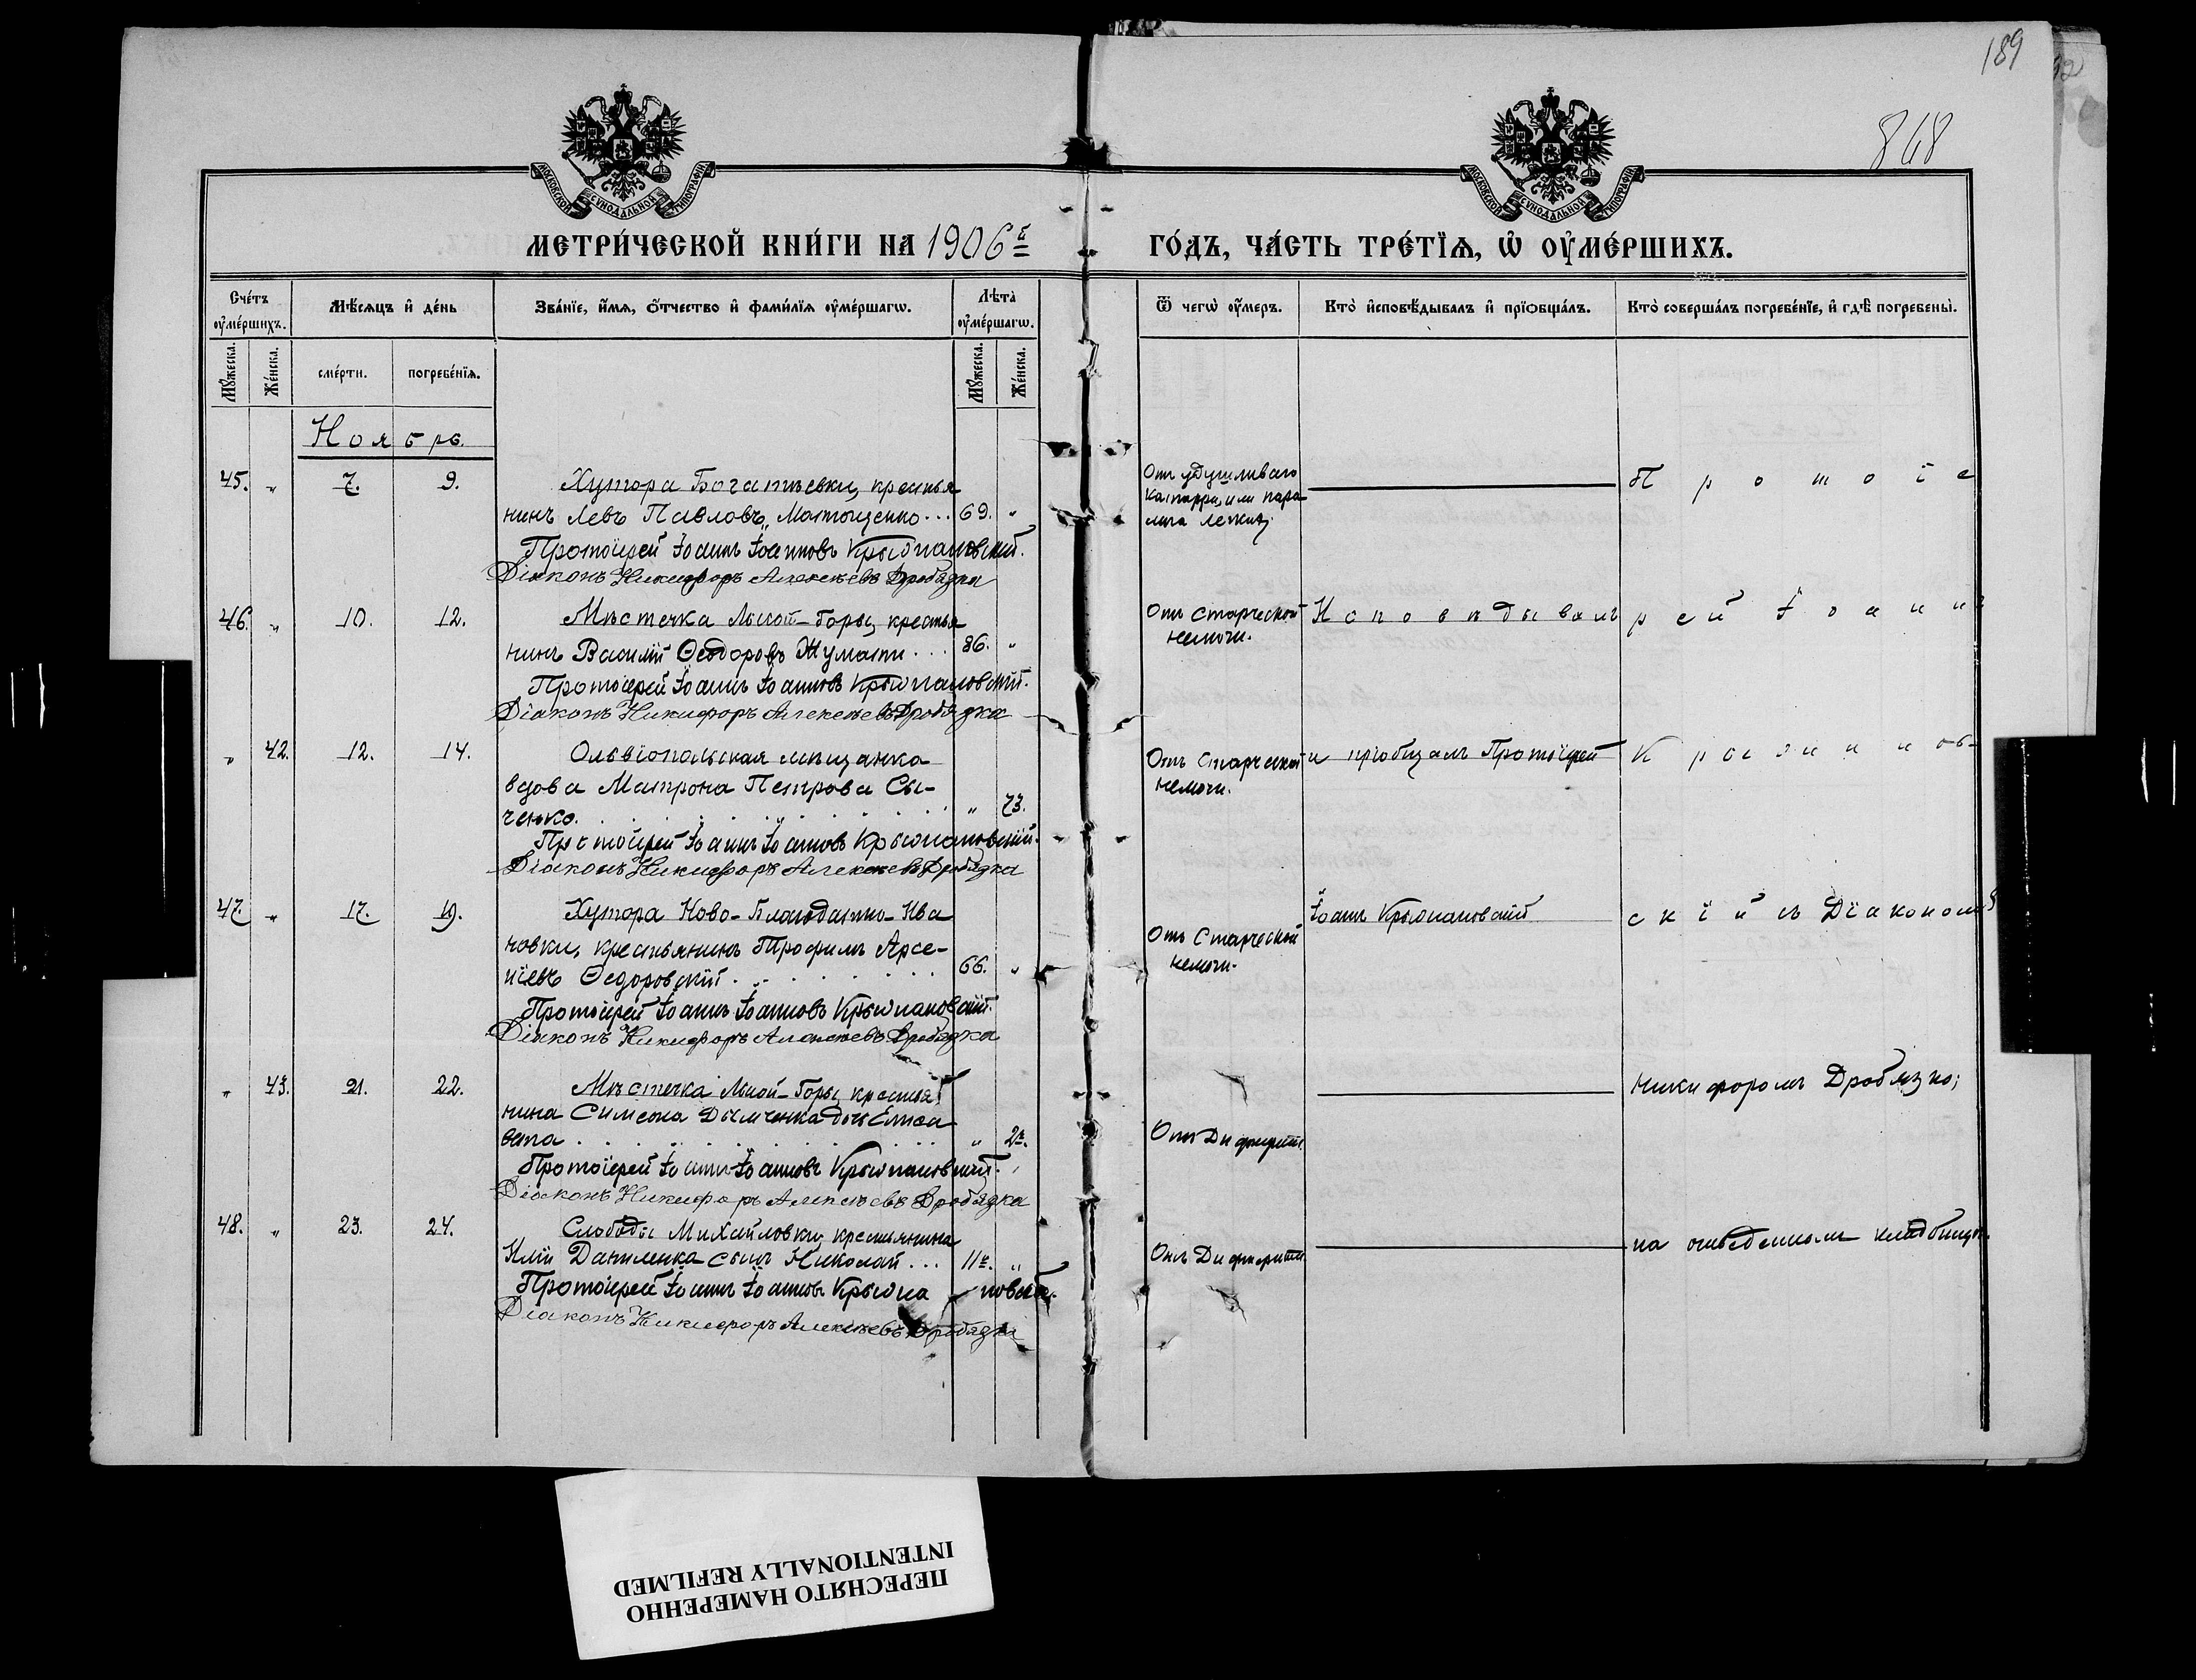 189
848
МОСКОВСКОЙ СѴНОДАЛЬНОЙ ТИПОГРАФІИ
МОСКОВСКОЙ СѴНОДАЛЬНОЙ ТИПОГРАФІИ
МЕТРИ́ЧЕСКОЙ КНИ́ГИ НА 1906й
ГО́ДЪ, ЧА́СТЬ ТРЕ́ТЇѦ, Ѡ҆ ОУ҆МЕ́РШИХЪ.
Сче́тъ оу҆ме́ршихъ.
Мѣ́сѧцъ и҆ де́нь
Зва́нїе, и҆́мѧ, ѻ҆́тчество и҆ фами́лїѧ оу҆ме́ршагѡ.
Лѣта̀ оу҆ме́ршагѡ.
Ѿ чегѡ̀ оу҆́меръ.
Кто̀ и҆сповѣ́дывалъ и҆ прїѡбща́лъ.
Кто̀ соверша́лъ погребе́нїе, и҆ гдѣ̀ погребены̀.
Мꙋ́жеска.
Же́нска.
сме́рти.
погребе́нїѧ.
Мꙋ́жеска.
Же́нска.
Ноябрь.
45. „ 7. 9. Хутора Богатѣевки, крестья
нинъ Левъ Павловъ Матющенко... 69. „
Протоіерей Іоаннъ Іоанновъ Крыжановскій.
Діаконъ Никифоръ Алексѣевъ Дробязка
Отъ удушливаго
катарра, или пара
лича легкихъ.
Протоіе
46. „ 10. 12. Мѣстечка Лысой-Горы, крестья
нинъ Василій Ѳеодоровъ Жумати... 86. „
Протоіерей Іоаннъ Іоанновъ Крыжановскій.
Діаконъ Никифоръ Алексѣевъ Дробязка
Отъ Старческой
немочи.
Исповѣдывалъ
рей Іоаннъ
„ 42. 12. 14. Ольвіопольская мѣщанка
вдова Матрона Петрова Сы-
ченко. „ 73.
Протоіерей Іоаннъ Іоанновъ Крыжановскій.
Діаконъ Никифоръ Алексѣевъ Дробязка
Отъ Старческой
немочи.
и пріобщалъ Протоіерей
Крыжанов-
47. „ 17. 19. Хутора Ново-Благодатно-Ива
новки, крестьянинъ Трофимъ Арсе-
ніевъ Ѳедоровскій... 66. „
Протоіерей Іоаннъ Іоанновъ Крыжановскій.
Діаконъ Никифоръ Алексѣевъ Дробязка
Отъ Старческой
немочи.
Іоаннъ Крыжановскій
скій съ Діакономъ
„ 43. 21. 22. Мѣстечка Лысой-Горы, крестья
нина Симеона Дымченка дочь Елиса
вета... „ 2г.
Протоіерей Іоаннъ Іоанновъ Крыжановскій.
Діаконъ Никифоръ Алексѣевъ Дробязка
Отъ Дифтерита.
Никифоромъ Дробязко;
48. „ 23. 24. Слободы Михайловки, крестьянина
Иліи Даниленка сынъ Николай... „
Протоіерей Іоаннъ Іоанновъ Крыжа - новскій.
Діаконъ Никифоръ Алексѣевъ Дробязка
Отъ Дифтерита.
на отведенномъ кладбищѣ.
ПЕРЕСНЯТО НАМЕРЕННО
INTENTIONALLY REFILMED